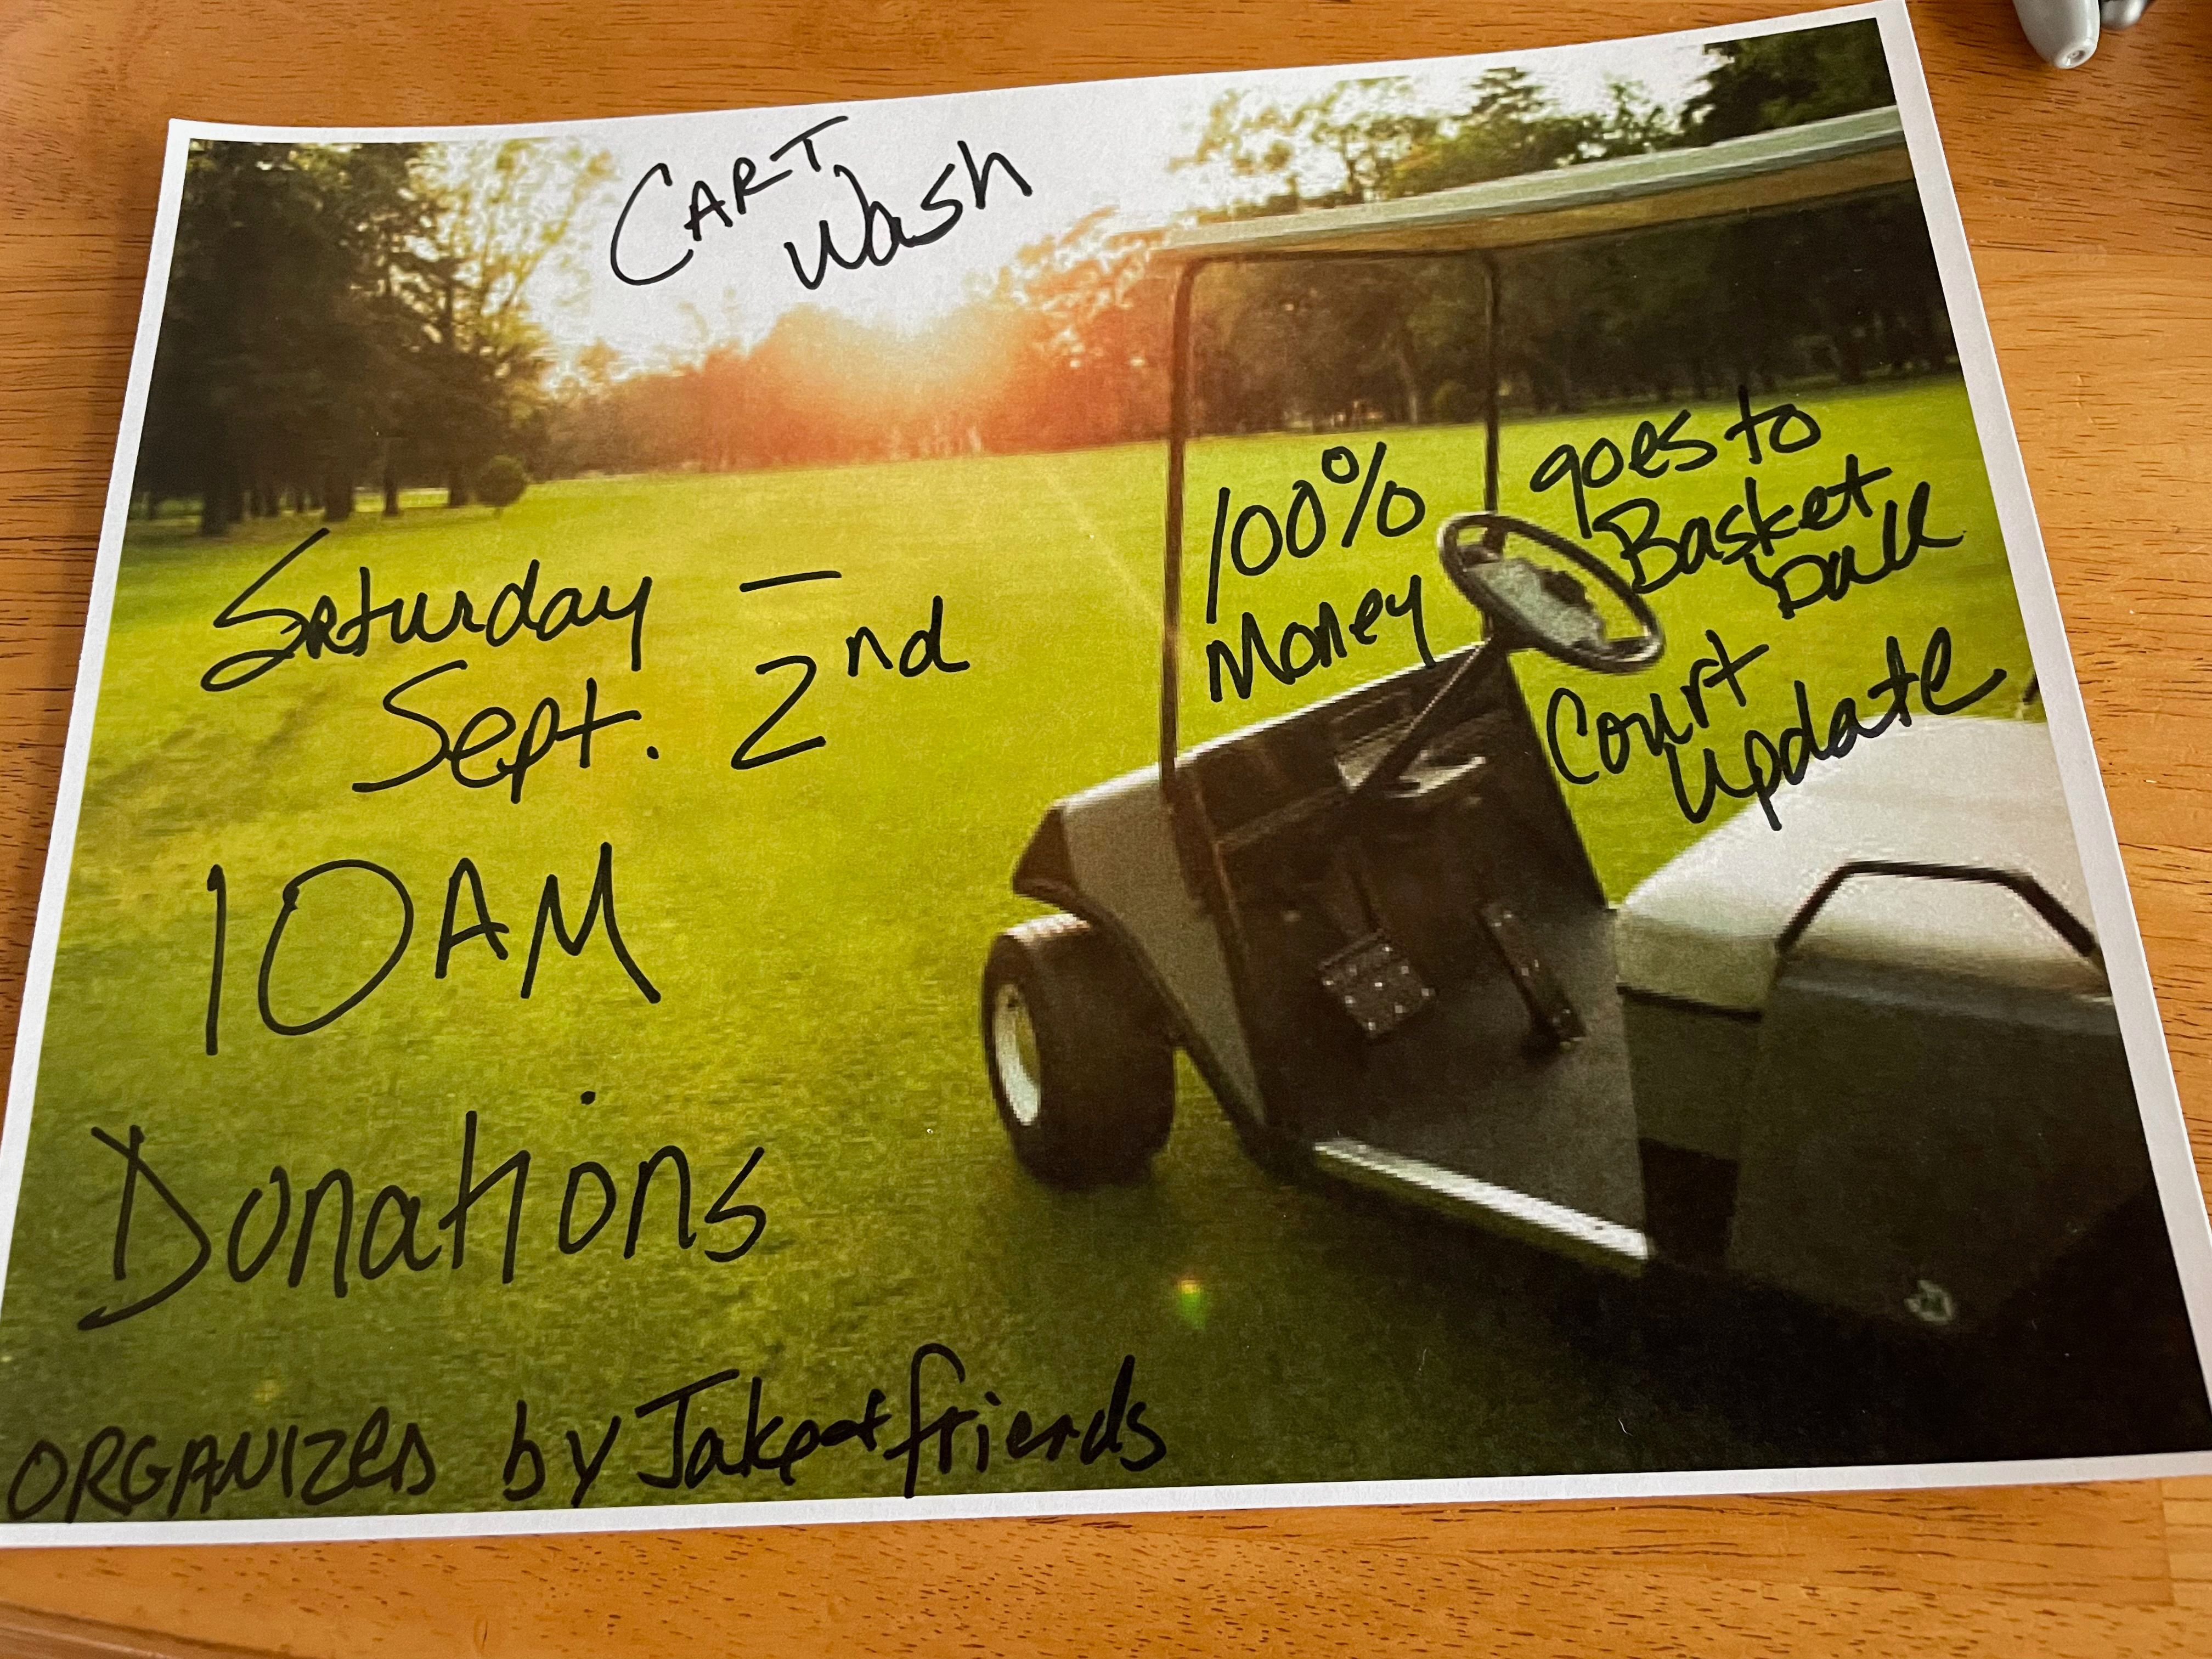 CART
Wash
Saturday –
Sept. 2nd
10AM
Donations
100%
Money
goes to
Basket
ball
Court
update
ORGANIZED by Jake + friends